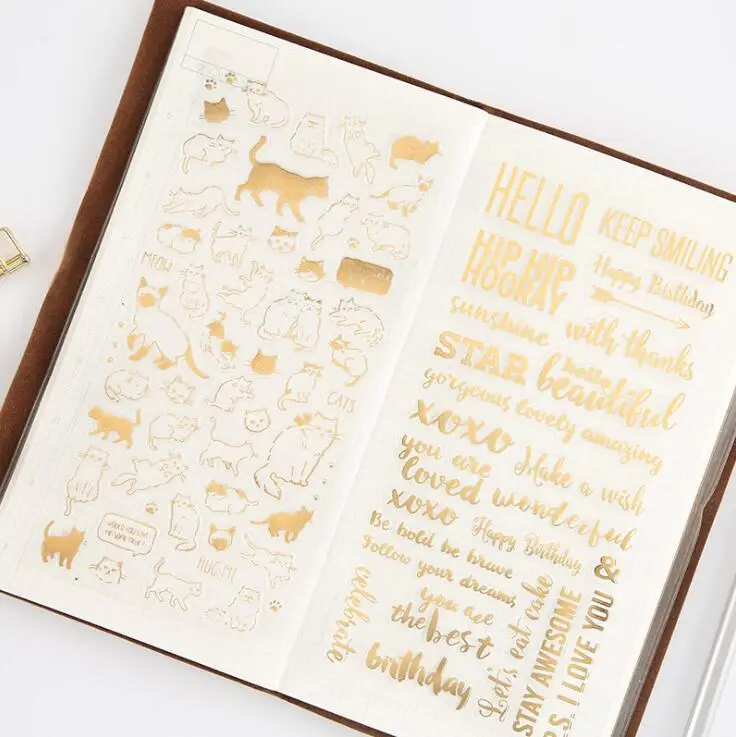 MEOW
CATS
HUG ME
HELLO
KEEP SMILING
HIP HIP
HOORAY
Happy Birthday
sunshine
with thanks
STAR
hello
beautiful
gorgeous, lovely amazing
xoxo
Make a wish
you are
loved wonderful
xoxo
Happy Birthday
Be bold be brave
Follow your dreams,
you are
the best
birthday
celebrate
Let's eat cake
STAY AWESOME
I LOVE YOU &